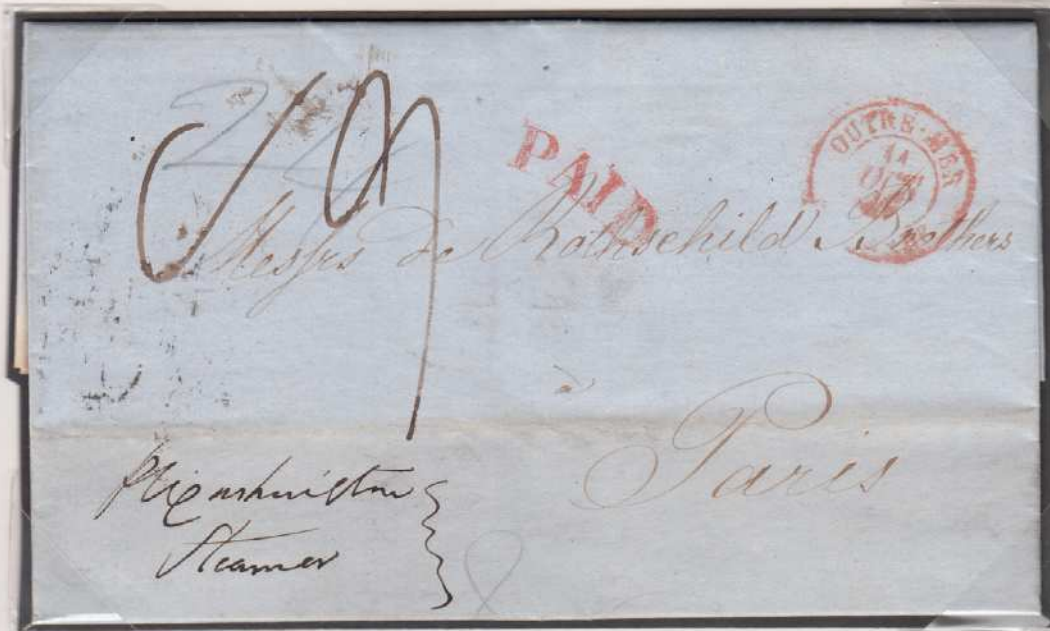 24
PAID
OUTRE-MER
11
Messrs de Rothschild Brothers
à
Paris
p Washington
Steamer